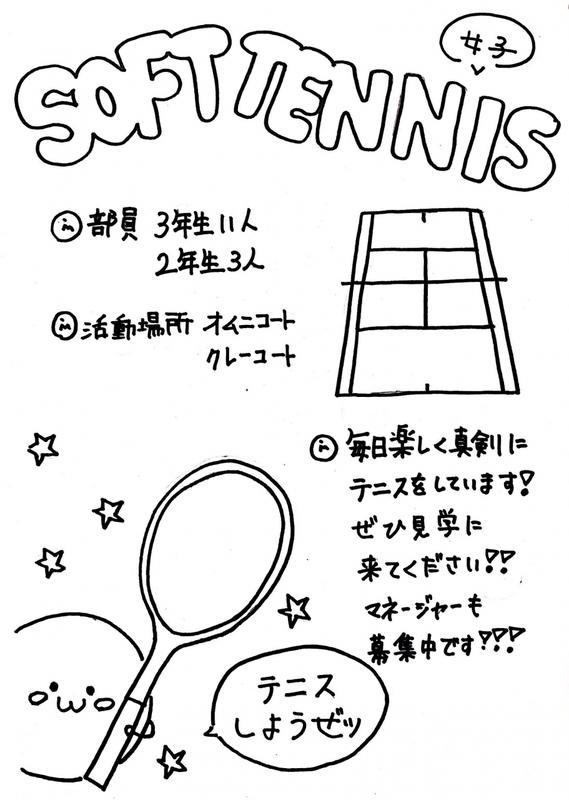 女子
SOFT TENNIS
部員 3年生11人
2年生3人
活動場所 オムニコート
クレーコート
毎日楽しく真剣に
テニスをしています!
ぜひ見学に
来てください!!
マネージャーも
募集中です!!!
テニス
しようぜッ